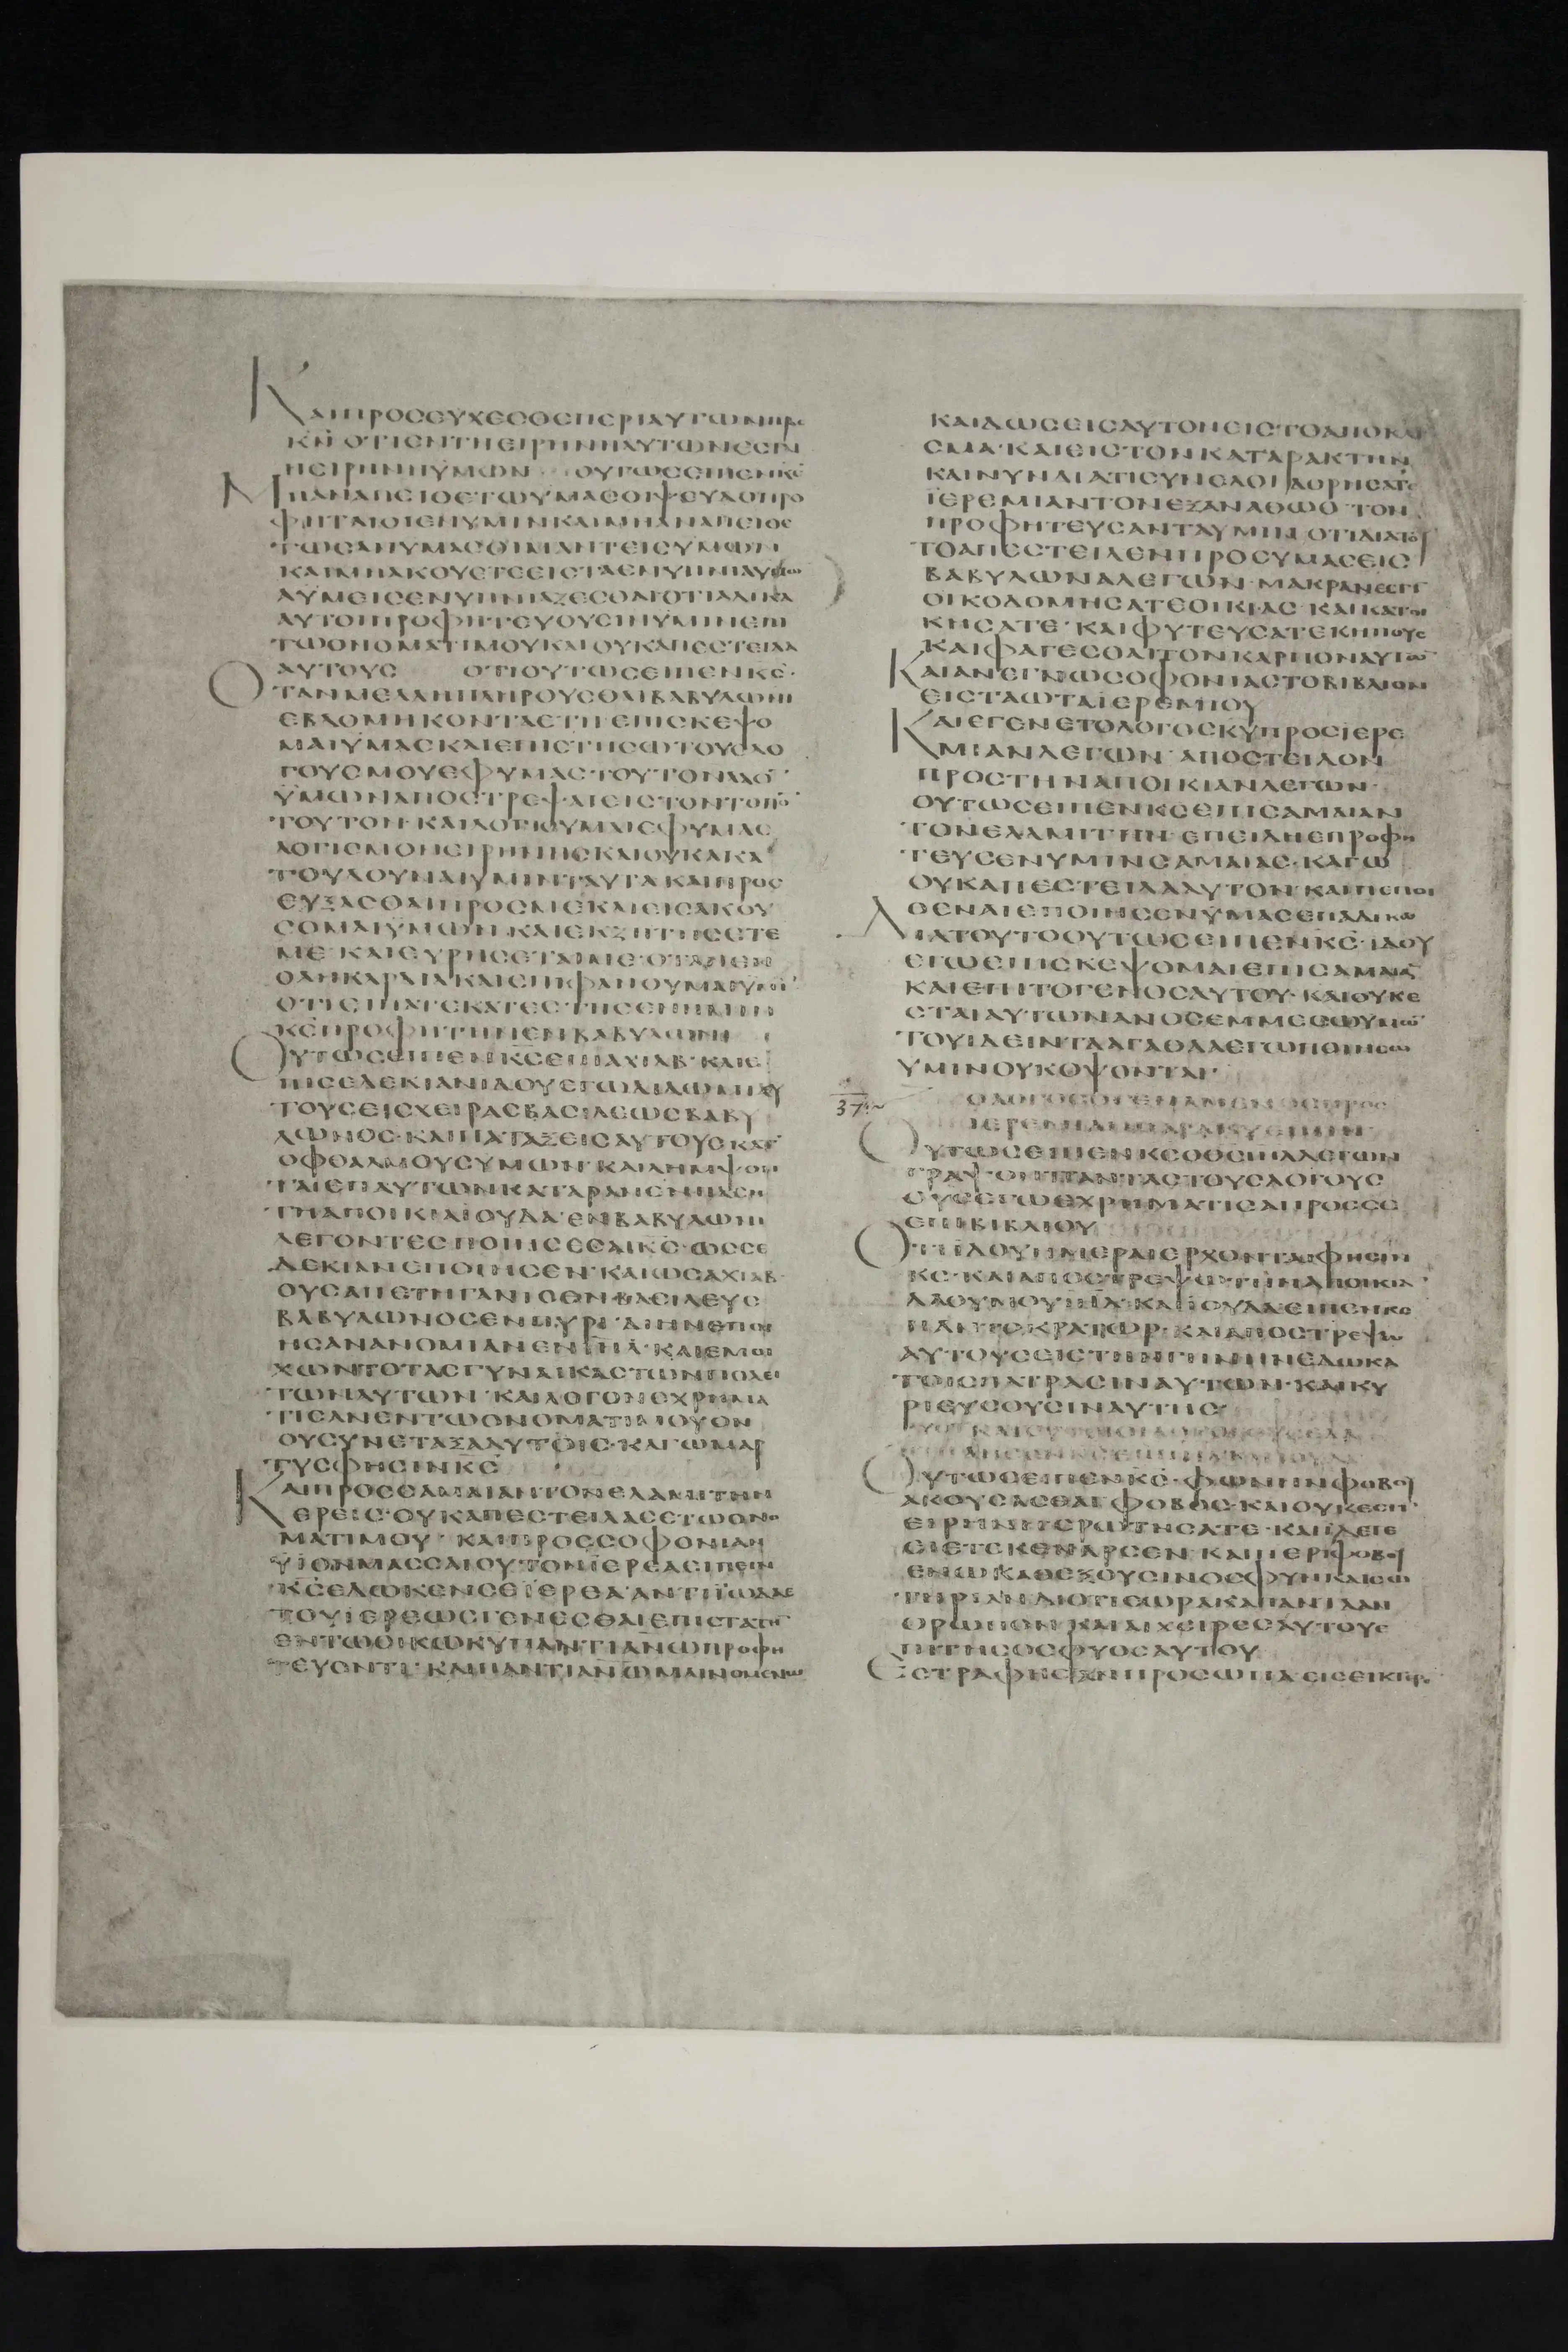 ΚΑΙΠΡΟΣΕΥΧΕΣΘΕΠΕΡΙΑΥΤΩΝΠΡΟΣ
ΚΝ ΟΤΙΕΝΤΗΕΙΡΗΝΗΑΥΤΩΝΕΣΤΑΙ
ΗΕΙΡΗΝΗΫΜΩΝ ΟΥΤΩΣΕΙΠΕΝΚΣ
ΜΗΑΝΑΠΕΙΘΕΤΩΥΜΑΣΟΙΨΕΥΔΟΠΡΟ
ΦΗΤΑΙΟΙΕΝΥΜΙΝΚΑΙΜΗΑΝΑΠΕΙΘΕ
ΤΩΣΑΝΥΜΑΣΟΙΜΑΝΤΕΙΣΥΜΩΝ
ΚΑΙΜΗΑΚΟΥΕΤΕΕΙΣΤΑΕΝΥΠΝΙΑΥΜΩ
ΑΥΜΕΙΣΕΝΥΠΝΙΑΖΕΣΘΑΙΟΤΙΑΔΙΚΑ
ΑΥΤΟΙΠΡΟΦΗΤΕΥΟΥΣΙΝΥΜΙΝΕΠΙ
ΤΩΟΝΟΜΑΤΙΜΟΥΚΑΙΟΥΚΑΠΕΣΤΕΙΛΑ
ΑΥΤΟΥΣ ΟΤΙΟΥΤΩΣΕΙΠΕΝΚΣ·
ΟΤΑΝΜΕΛΛΗΠΛΗΡΟΥΣΘΑΙΒΑΒΥΛΩΝΙ
ΕΒΔΟΜΗΚΟΝΤΑΕΤΗΕΠΙΣΚΕΨΟ
ΜΑΙΥΜΑΣΚΑΙΕΠΙΣΤΗΣΩΤΟΥΣΛΟ
ΓΟΥΣΜΟΥΕΦΥΜΑΣΤΟΥΤΟΝΛΑΟ
ΫΜΩΝΑΠΟΣΤΡΕΨΑΙΕΙΣΤΟΝΤΟΠΟ
ΤΟΥΤΟΝ·ΚΑΙΛΟΓΙΟΥΜΑΙΕΦΥΜΑΣ
ΛΟΓΙΣΜΟΝΕΙΡΗΝΗΣΚΑΙΟΥΚΑΚΑ
ΤΟΥΔΟΥΝΑΙΥΜΙΝΤΑΥΤΑΚΑΙΠΡΟΣ
ΕΥΞΑΣΘΑΙΠΡΟΣΜΕΚΑΙΕΙΣΑΚΟΥ
ΣΟΜΑΙΥΜΩΝ·ΚΑΙΕΚΖΗΤΗΣΕΤΕ
ΜΕ ΚΑΙΕΥΡΗΣΕΤΑΙΜΕ·ΟΤΑΙΕΝ
ΟΛΗΚΑΡΔΙΑΚΑΙΕΠΙΦΑΝΟΥΜΑΙΥΜΙ
ΟΤΙΕΙΠΑΤΕΚΑΤΕΣΤΗΣΕΝΗΜΙΝ
ΚΣΠΡΟΦΗΤΗΝΕΝΒΑΒΥΛΩΝΙ
ΟΥΤΩΣΕΙΠΕΝΚΣΕΠΙΑΧΙΑΒ·ΚΑΙΕ
ΠΙΣΕΔΕΚΙΑΝΙΔΟΥΕΓΩΔΙΔΩΜΙΑΥ
ΤΟΥΣΕΙΣΧΕΙΡΑΣΒΑΣΙΛΕΩΣΒΑΒΥ
ΛΩΝΟΣ·ΚΑΙΠΑΤΑΞΕΙΣΑΥΤΟΥΣΚΑΤ
ΟΦΘΑΛΜΟΥΣΥΜΩΝ·ΚΑΙΛΗΜΨΟΝ
ΤΑΙΕΠΑΥΤΩΝΚΑΤΑΡΑΝΕΝΠΑΣΗ
ΤΗΑΠΟΙΚΙΑΙΟΥΔΑ ΕΝΒΑΒΥΛΩΝΙ
ΛΕΓΟΝΤΕΣΠΟΙΗΣΕΘΑΙΚΣ·ΩΣΣΕ
ΔΕΚΙΑΝΕΠΟΙΗΣΕΝ·ΚΑΙΩΣΑΧΙΑΒ
ΟΥΣΑΠΕΤΗΓΑΝΙΣΕΝΒΑΣΙΛΕΥΣ
ΒΑΒΥΛΩΝΟΣΕΝΠΥΡΙ ΔΙΗΝΕΠΟΙ
ΗΣΑΝΑΝΟΜΙΑΝΕΝΙΗΛ·ΚΑΙΕΜΟΙ
ΧΩΝΤΟΤΑΣΓΥΝΑΙΚΑΣΤΩΝΠΟΛΕΙ
ΤΩΝΑΥΤΩΝ ΚΑΙΛΟΓΟΝΕΧΡΗΜΑ
ΤΙΣΑΝΕΝΤΩΟΝΟΜΑΤΙΜΟΥΟΝ
ΟΥΣΥΝΕΤΑΞΑΑΥΤΟΙΣ·ΚΑΓΩΜΑΡ
ΤΥΣΦΗΣΙΝΚΣ
ΚΑΙΠΡΟΣΣΑΜΑΙΑΝΤΟΝΕΛΑΜΙΤΗΝ
ΕΡΕΙΣ·ΟΥΚΑΠΕΣΤΕΙΛΑΣΕΤΩΟΝΟ
ΜΑΤΙΜΟΥ ΚΑΙΠΡΟΣΣΟΦΟΝΙΑΝ
ΫΙΟΝΜΑΣΣΑΙΟΥΤΟΝΪΕΡΕΑΕΙΠΕΙΝ
ΚΣΕΔΩΚΕΝΣΕΪΕΡΕΑ ΑΝΤΙΪΩΔΑΕ
ΤΟΥΪΕΡΕΩΣΓΕΝΕΣΘΑΙΕΠΙΣΤΑΤΗ
ΕΝΤΩΟΙΚΩΚΥΠΑΝΤΙΑΝΩΠΡΟΦΗ
ΤΕΥΟΝΤΙ·ΚΑΙΠΑΝΤΙΑΝΩΜΑΙΝΟΜΕΝΩ
ΚΑΙΔΩΣΕΙΣΑΥΤΟΝΕΙΣΤΟΑΠΟΚΛΙ
ΣΜΑ·ΚΑΙΕΙΣΤΟΝΚΑΤΑΡΑΚΤΗΝ
ΚΑΙΝΥΝΔΙΑΤΙΣΥΝΕΛΟΙΔΟΡΗΣΑΤΕ
ΪΕΡΕΜΙΑΝΤΟΝΕΞΑΝΑΘΩΘ·ΤΟΝ
ΠΡΟΦΗΤΕΥΣΑΝΤΑΥΜΙΝ ΟΤΙΔΙΑΤΟΥ
ΤΟΑΠΕΣΤΕΙΛΕΝΠΡΟΣΥΜΑΣΕΙΣ
ΒΑΒΥΛΩΝΑΛΕΓΩΝ·ΜΑΚΡΑΝΕΣΤΙ
ΟΙΚΟΔΟΜΗΣΑΤΕΟΙΚΙΑΣ ΚΑΙΚΑΤΟΙ
ΚΗΣΑΤΕ·ΚΑΙΦΥΤΕΥΣΑΤΕΚΗΠΟΥΣ
ΚΑΙΦΑΓΕΣΘΑΙΤΟΝΚΑΡΠΟΝΑΥΤΩ
ΚΑΙΑΝΕΓΝΩΣΟΦΟΝΙΑΣΤΟΒΙΒΛΙΟΝ
ΕΙΣΤΑΩΤΑΪΕΡΕΜΙΟΥ
ΚΑΙΕΓΕΝΕΤΟΛΟΓΟΣΚΥΠΡΟΣΪΕΡΕ
ΜΙΑΝΛΕΓΩΝ ΑΠΟΣΤΕΙΛΟΝ
ΠΡΟΣΤΗΝΑΠΟΙΚΙΑΝΛΕΓΩΝ·
ΟΥΤΩΣΕΙΠΕΝΚΣΕΠΙΣΑΜΑΙΑΝ
ΤΟΝΕΛΑΜΙΤΗΝ·ΕΠΕΙΔΗΕΠΡΟΦΗ
ΤΕΥΣΕΝΥΜΙΝΣΑΜΑΙΑΣ·ΚΑΓΩ
ΟΥΚΑΠΕΣΤΕΙΛΑΑΥΤΟΝ·ΚΑΙΠΕΠΟΙ
ΘΕΝΑΙΕΠΟΙΗΣΕΝΫΜΑΣΕΠΑΔΙΚΩ
ΔΙΑΤΟΥΤΟΟΥΤΩΣΕΙΠΕΝΚΣ·ΙΔΟΥ
ΕΓΩΕΠΙΣΚΕΨΟΜΑΙΕΠΙΣΑΜΑΙΑ
ΚΑΙΕΠΙΤΟΓΕΝΟΣΑΥΤΟΥ·ΚΑΙΟΥΚΕ
ΣΤΑΙΑΥΤΩΝΑΝΟΣΕΜΜΕΣΩΥΜΩ
ΤΟΥΙΔΕΙΝΤΑΑΓΑΘΑΑΕΓΩΠΟΙΗΣΩ
ΥΜΙΝΟΥΚΟΨΟΝΤΑΙ·
37
ΟΛΟΓΟΣΟΓΕΝΑΜΕΝΟΣΠΡΟΣ
ΙΕΡΕΜΙΑΝΠΑΡΑΚΥΕΙΠΕΙΝ
ΟΥΤΩΣΕΙΠΕΝΚΣΟΘΣΙΗΛΛΕΓΩΝ
ΓΡΑΨΟΝΠΑΝΤΑΣΤΟΥΣΛΟΓΟΥΣ
ΟΥΣΕΓΩΕΧΡΗΜΑΤΙΣΑΠΡΟΣΣΕ
ΕΠΙΒΙΒΛΙΟΥ
ΟΤΙΪΔΟΥΗΜΕΡΑΙΕΡΧΟΝΤΑΙΦΗΣΙΝ
ΚΣ·ΚΑΙΑΠΟΣΤΡΕΨΩΤΗΝΑΠΟΙΚΙΑ
ΛΑΟΥΜΟΥΙΗΛ·ΚΑΙΙΟΥΔΑΕΙΠΕΝΚΣ
ΠΑΝΤΟΚΡΑΤΩΡ·ΚΑΙΑΠΟΣΤΡΕΨΩ
ΑΥΤΟΥΣΕΙΣΤΗΝΓΗΝΗΝΕΔΩΚΑ
ΤΟΙΣΠΑΤΡΑΣΙΝΑΥΤΩΝ·ΚΑΙΚΥ
ΡΙΕΥΣΟΥΣΙΝΑΥΤΗΣ
ΟΥΤΩΣΕΙΠΕΝΚΣ·ΦΩΝΗΝΦΟΒΟΥ
ΑΚΟΥΣΑΣΘΑΙ ΦΟΒΟΣ·ΚΑΙΟΥΚΕΣΤΙ
ΕΙΡΗΝΗΕΡΩΤΗΣΑΤΕ·ΚΑΙΪΔΕΤΕ
ΕΙΕΤΕΚΕΝΑΡΣΕΝ·ΚΑΙΠΕΡΙΦΟΒΟΥ
ΕΝΩΚΑΘΕΞΟΥΣΙΝΟΣΦΥΝΚΑΙΣΩ
ΤΗΡΙΑΝ·ΔΙΟΤΙΕΩΡΑΚΑΠΑΝΤΑΑΝ
ΘΡΩΠΟΝ·ΚΑΙΑΙΧΕΙΡΕΣΑΥΤΟΥΕ
ΠΙΤΗΣΟΣΦΥΟΣΑΥΤΟΥ
ΕΣΤΡΑΦΗΣΑΝΠΡΟΣΩΠΑΕΙΣΕΙΚΤΕΡΟ